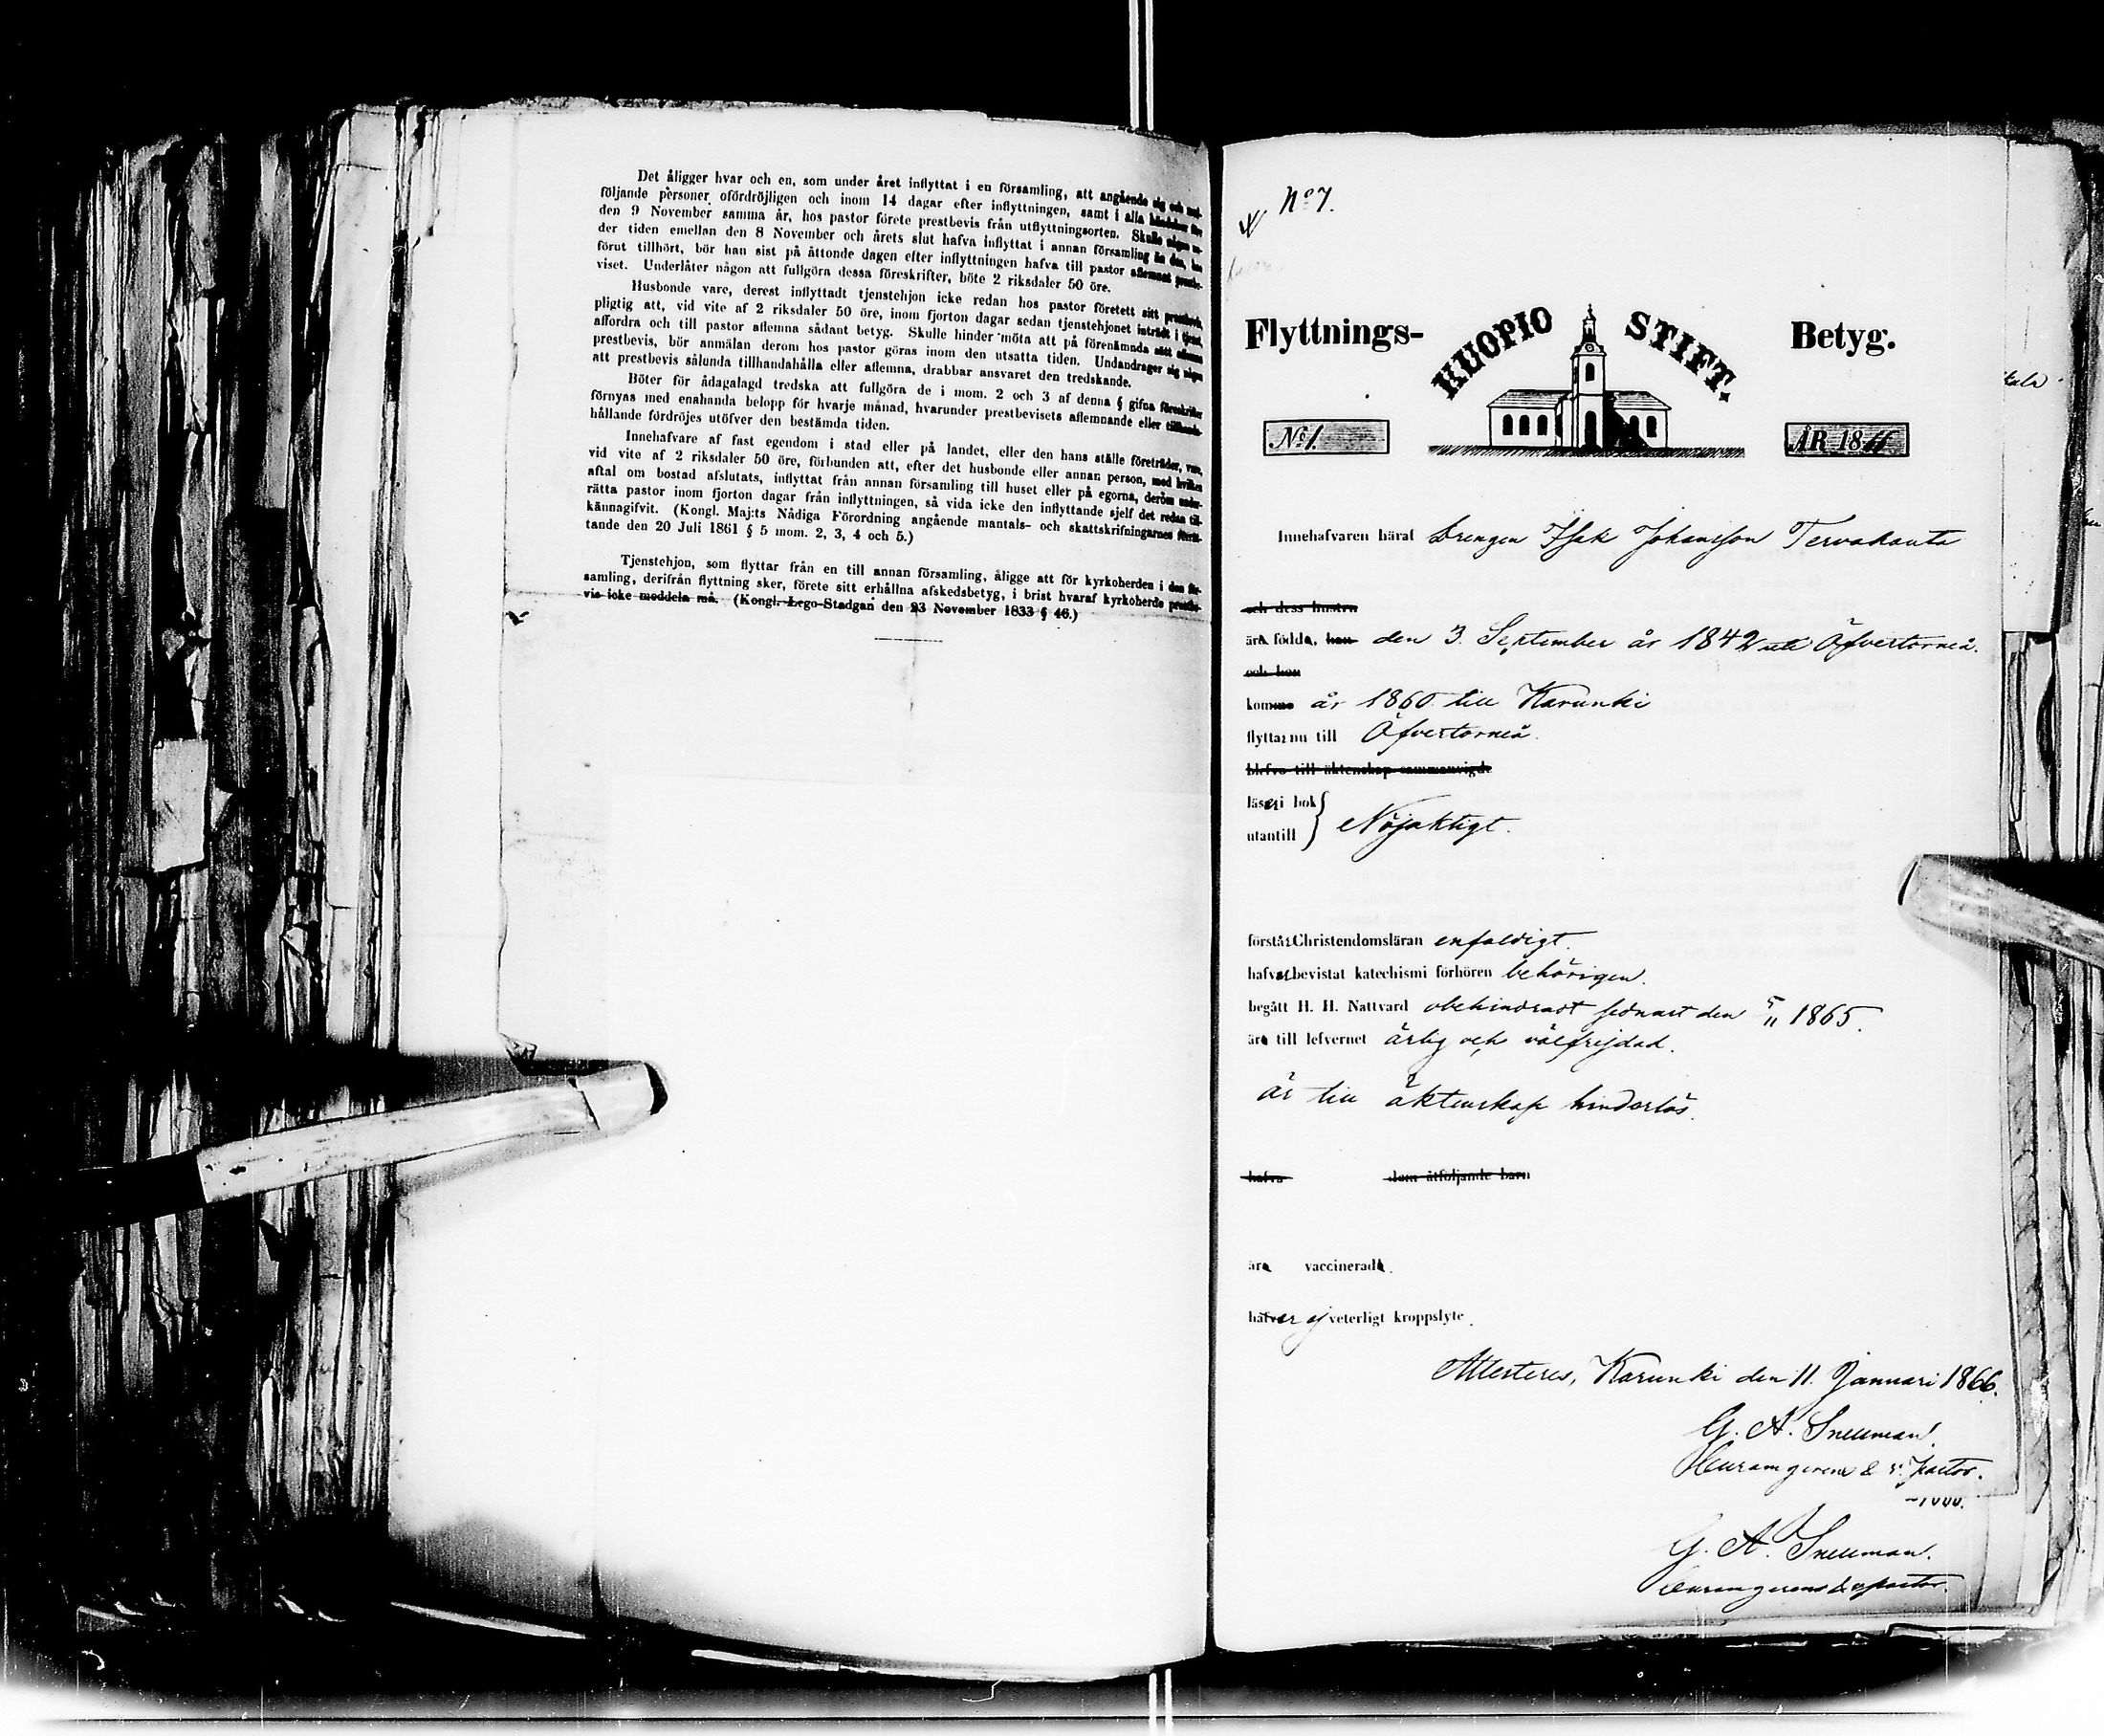 Det åligger hvar och en, som under året inflyttat i en församling, att angående sig och
följande personer ofördröjligen och inom 14 dagar efter inflyttningen, samt i alla händelser före
den 9 November samma år, hos pastor förete prestbevis från utflyttningsorten. Skulle någon un-
der tiden emellan den 8 November och årets slut hafva inflyttat i annan församling än den, han
förut tillhört, bör han sist på åttonde dagen efter inflyttningen hafva till pastor aflemnat prestbe-
viset. Underlåter någon att fullgöra dessa föreskrifter, böte 2 riksdaler 50 öre.
Husbonde vare, derest inflyttadt tjenstehjon icke redan hos pastor företett sitt prestbevis,
pligtig att, vid vite af 2 riksdaler 50 öre, inom fjorton dagar sedan tjenstehjonet inträdt i tjenst,
affordra och till pastor aflemna sådant betyg. Skulle hinder möta att på förenämnda sätt aflemna
prestbevis, bör anmälan derom hos pastor göras inom den utsatta tiden. Undandrager sig någon
att prestbevis sålunda tillhandahålla eller aflemna, drabbar ansvaret den tredskande.
Böter för ådagalagd tredska att fullgöra de i mom. 2 och 3 af denna § gifna föreskrifter
förnyas med enahanda belopp för hvarje månad, hvarunder prestbevisets aflemnande eller tillhanda-
hållande fördröjes utöfver den bestämda tiden.
Innehafvare af fast egendom i stad eller på landet, eller den hans ställe företräder, vare,
vid vite af 2 riksdaler 50 öre, förbunden att, efter det husbonde eller annan person, med hvilken
aftal om bostad afslutats, inflyttat från annan församling till huset eller på egorna, derom under-
rätta pastor inom fjorton dagar från inflyttningen, så vida icke den inflyttande sjelf det redan till-
kännagifvit. (Kongl. Maj:ts Nådiga Förordning angående mantals- och skattskrifningarnes förrät-
tande den 20 Juli 1861 § 5 mom. 2, 3, 4 och 5.)
Tjenstehjon, som flyttar från en till annan församling, åligge att för kyrkoherden i den för-
samling, derifrån flyttning sker, förete sitt erhållna afskedsbetyg, i brist hvaraf kyrkoherde prestbe-
vis icke meddela må. (Kongl. Lego-Stadgan den 23 November 1833 § 46.)
No 7.
Flyttnings- KUOPIO STIFT. Betyg.
No 1. ÅR 1866
Innehafvaren häraf Drengen Isak Johansson Tervakanta
och dess hustru
äro födda, han den 3. September år 1842 uti Öfvertorneå.
och hon
kommo år 1860 till Karunki
flyttar nu till Öfvertorneå.
blefvo till äktenskap sammanvigde
läser i bok
utantill } Nöjaktigt.
förstår Christendomsläran enfaldigt.
hafver bevistat katechismi förhören behörigen.
begått H. H. Nattvard obehindradt sednast den 5/11 1865.
äro till lefvernet ärlig och välfrejdad.
är till äktenskap hinderlös.
hafva dem åtföljande barn
äro vaccinerade.
hafver ej veterligt kroppslyte.
Attesteres, Karunki den 11. Januari 1866.
G. A. Snellman.
Curam gerens & v. pastor.
G. A. Snellman.
Curam gerens & v. pastor.